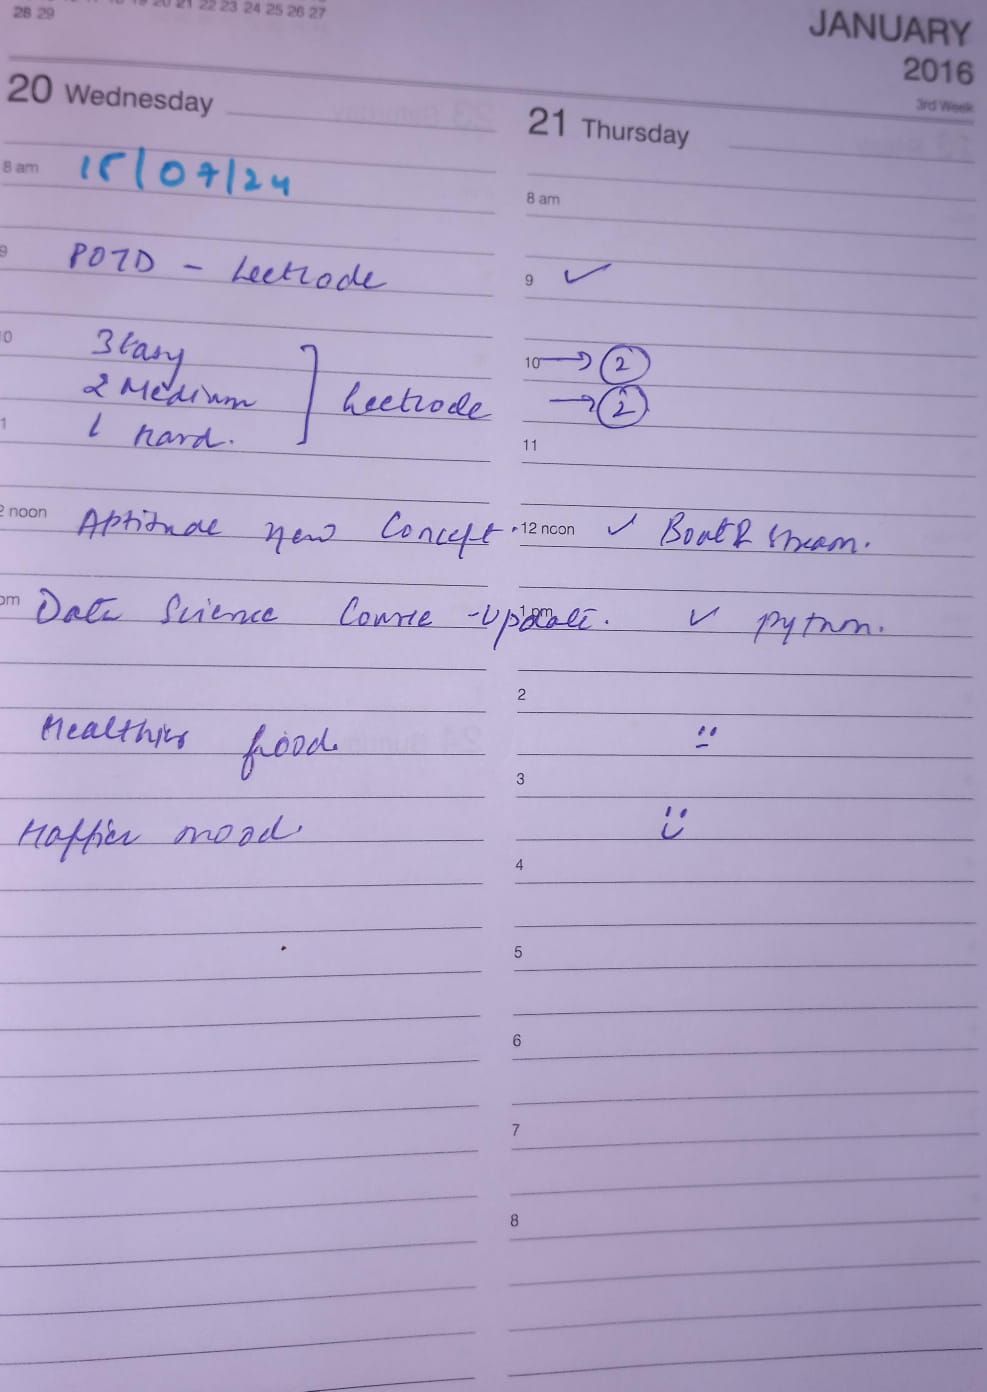 20 21 22 23 24 25 26 27
28 29
JANUARY
2016
3rd Week
20 Wednesday
21 Thursday
8 am 15/07/24
8 am
9 POTD - Leetcode
9 ✓
10 3 Easy
2 Medium
1 Hard.
Leetcode
10 → 2
→ 2
11
Aptitude new Concept.
12 noon ✓ Boat & Stream.
Data Science Course - Update.
1 pm ✓ python.
2
Healthier food.
3
Happier mood.
4
5
6
7
8